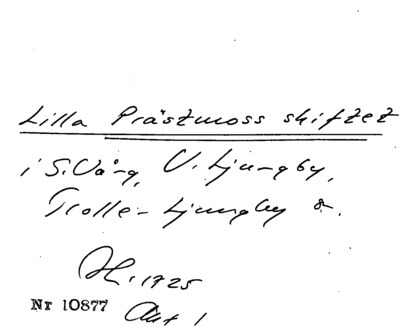 Lilla Prästmoss skiftet
i S. Vång, V. Ljungby,
Trolle-Ljungby &.
H. 1725
Nr 10877 Akt 1